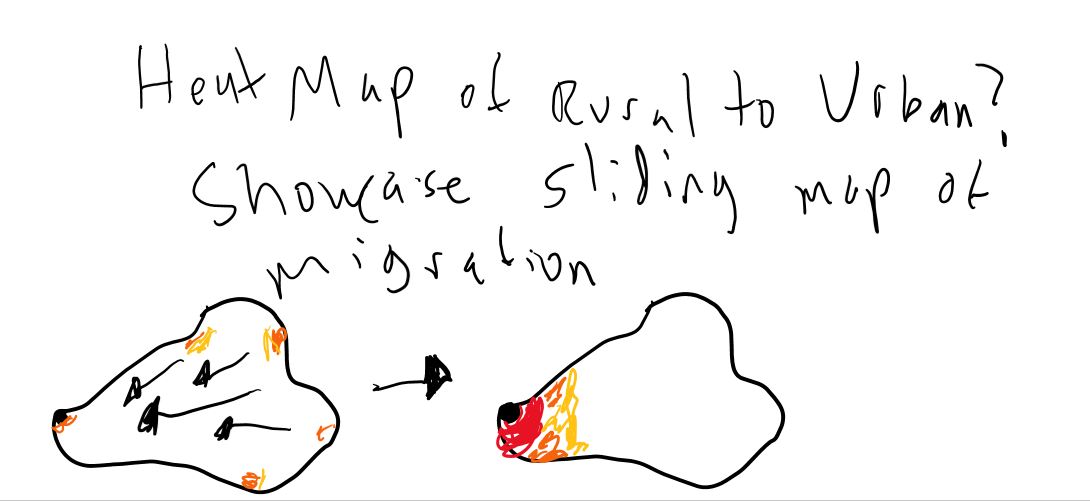 Heat Map of Rural to Urban?
Showcase sliding map of
migration